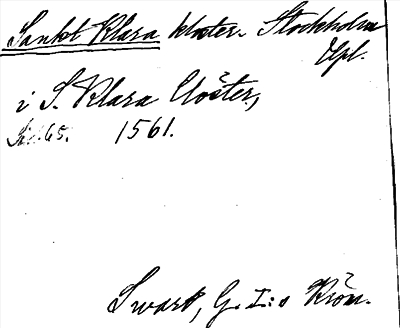 Sankt Klara kloster. Stockholm
Upl.
i S. Klara Closter,
Sid. 65. 1561.
Swart, G. I:s Krön.